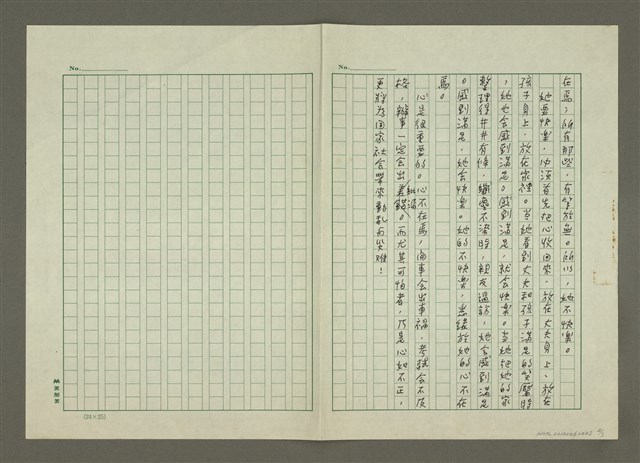 No.
在焉，所在那些，有等於無。所以，她不快樂。
她要快樂，必須首先把心收回來，放在丈夫身上、放在
孩子身上、放在家裡。當她看到丈夫和孩子滿足的笑靨時
，她也會感到滿足。感到滿足，就會快樂。當她把她的家
整理得井井有條，纖塵不染時，親友過訪，她會感到滿足
。感到滿足，她會快樂。她的不快樂，悉緣於她的心不在
焉。
心是很重要的。心不在焉，開車會出車禍，考試會不及
格，辦事一定會出紕漏。而尤其可怕者，乃是心如不正，
更將為國家社會帶來動亂與災難！
No.
(24×25)